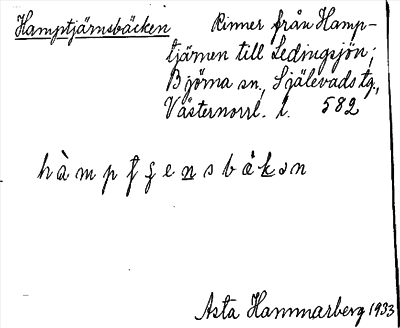 Hamptjärnsbäcken Rinner från Hamp-
tjärnen till Ledingsjön;
Björna sn, Själevads tg.,
Västernorrl. l. 582
Asta Hammarberg 1933